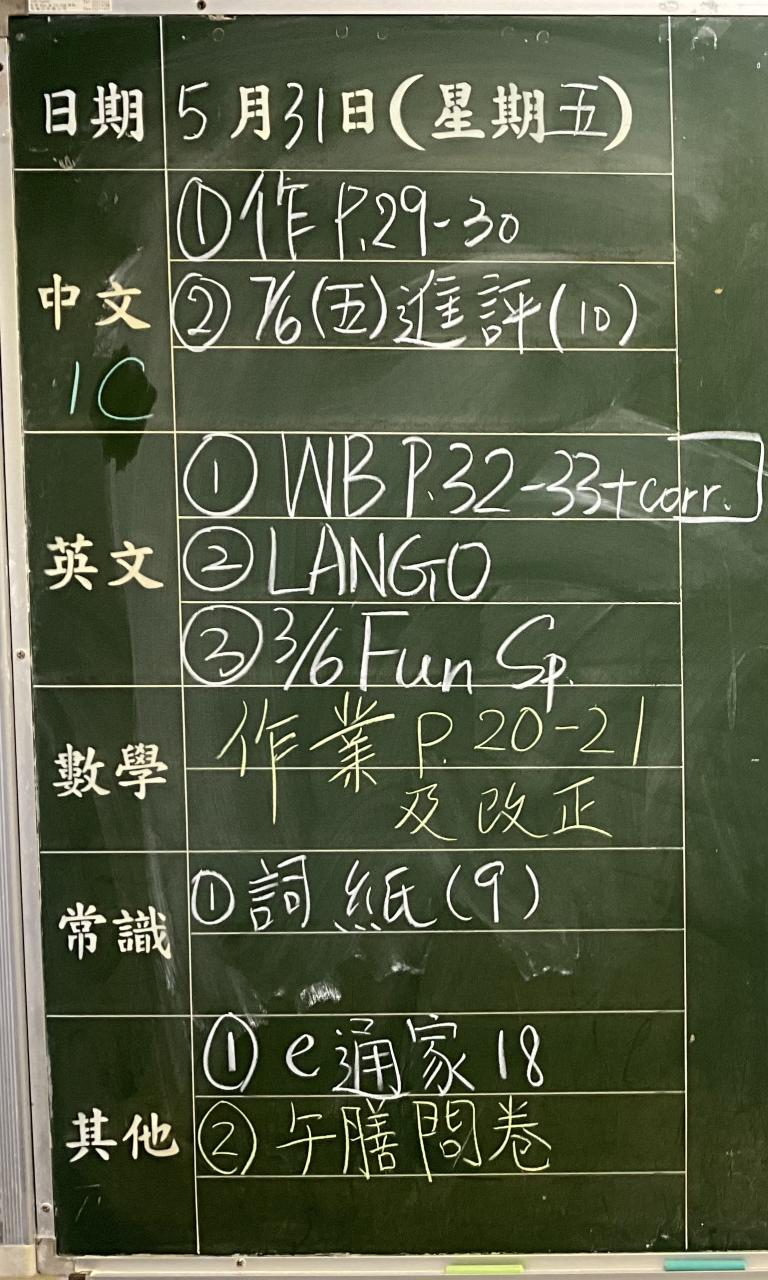 日期 5月31日(星期五)
①作 P.29-30
中文 ②7/6(五)進評(10)
1C
① WB P.32-33+corr.
英文 ②LANGO
③3/6 Fun Sp.
數學 作業 P.20-21
及改正
常識 ①詞紙(9)
①e通家18
其他 ②午膳問卷